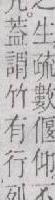 之生疏數偃仰
蓋謂竹有行列